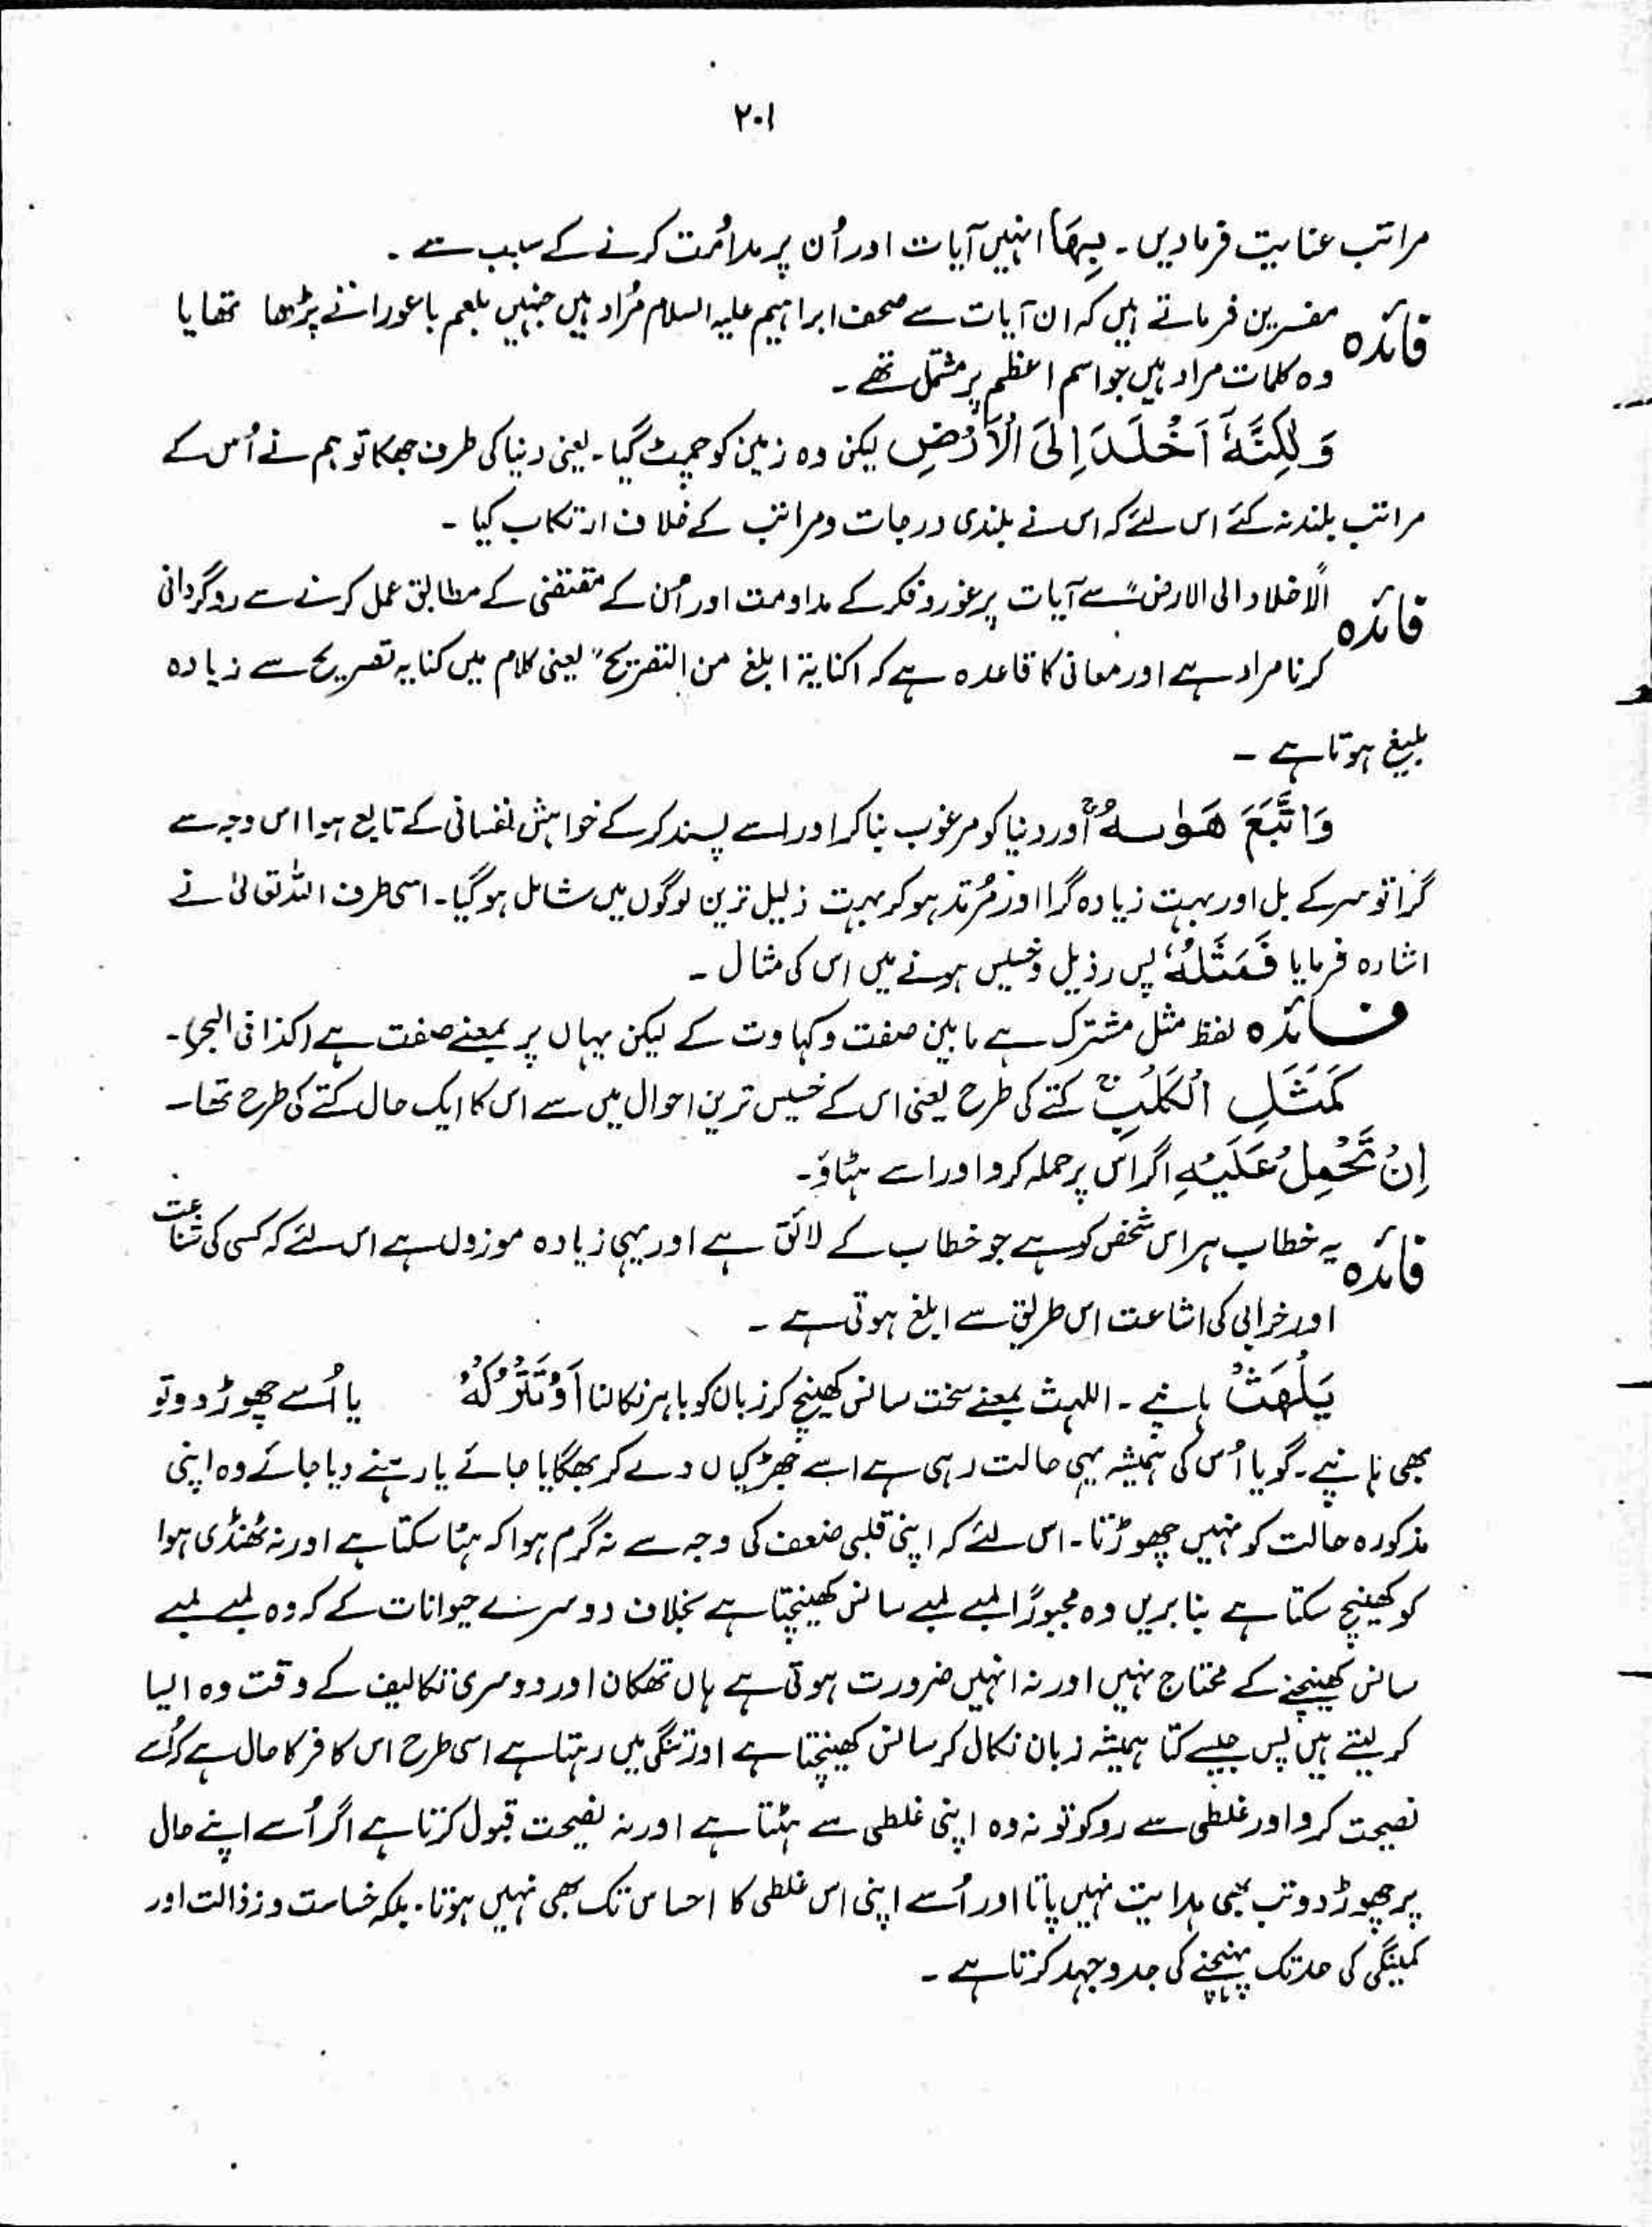 ۲۰۱
مراتب عنایت فرمادیں۔ بِهَا انہیں آیات اور اُن پر ملائمت کرنے کے سبب سے۔
فائدہ مفسرین فرماتے ہیں کہ ان آیات سے صحف ابراہیم علیہ السلام مُراد ہیں جنہیں بلعم باعورا نے پڑھا تھا یا
وہ کلمات مراد ہیں جو اسم اعظم پر مشتمل تھے۔
وَلٰكِنَّهٗٓ اَخْلَدَ اِلَى الْاَرْضِ لیکن وہ زمین کو چمٹ گیا۔ یعنی دنیا کی طرف جھکا تو ہم نے اُس کے
مراتب بلند نہ کئے اس لئے کہ اس نے بلندی درجات و مراتب کے خلاف ارتکاب کیا۔
فائدہ الاخلاد الی الارض سے آیات پر غور و فکر کے مداومت اور اُن کے مقتضٰی کے مطابق عمل کرنے سے روگردانی
کرنا مراد ہے اور معانی کا قاعدہ ہے کہ اکنایة ابلغ من التصریح" یعنی کلام میں کنایہ تصریح سے زیادہ
بلیغ ہوتا ہے۔
وَاتَّبَعَ هَوٰىهُ ۚ اور دنیا کو مرغوب بنا کر اور اسے پسند کر کے خواہش نفسانی کے تابع ہوا اس وجہ سے
گرا تو سر کے بل اور بہت زیادہ گرا اور مُرتد ہو کر بہت ذلیل ترین لوگوں میں شامل ہو گیا۔ اسی طرف اللہ تعالیٰ نے
اشارہ فرمایا فَمَثَلُهٗ پس رذیل و خسیس ہونے میں اس کی مثال۔
فائدہ لفظ مثل مشترک ہے مابین صفت و کہاوت کے لیکن یہاں پر بمعنے صفت ہے (کذا فی البحر)۔
كَمَثَلِ الْكَلْبِ ۚ کتے کی طرح یعنی اس کے خسیس ترین احوال میں سے اس کا ایک حال کتے کی طرح تھا۔
اِنْ تَحْمِلْ عَلَيْهِ اگر اس پر حملہ کرو اور اسے ہٹاؤ۔
فائدہ یہ خطاب ہر اس شخص کو ہے جو خطاب کے لائق ہے اور یہی زیادہ موزوں ہے اس لئے کہ کسی کی شناعت
اور خرابی کی اشاعت اس طریق سے ابلغ ہوتی ہے۔
يَلْهَثْ ہانپے۔ اللہث بمعنے سخت سانس کھینچ کر زبان کو باہر نکالنا اَوْ تَتْرُكْهُ یا اُسے چھوڑ دو تو
بھی ہانپے۔ گویا اُس کی ہمیشہ یہی حالت رہی ہے اسے جھڑکیاں دے کر بھگایا جائے یا رہنے دیا جائے وہ اپنی
مذکورہ حالت کو نہیں چھوڑتا۔ اس لئے کہ اپنی قلبی ضعف کی وجہ سے نہ گرم ہوا کہ ہٹا سکتا ہے اور نہ ٹھنڈی ہوا
کو کھینچ سکتا ہے بنا بریں وہ مجبوراً لمبے لمبے سانس کھینچتا ہے بخلاف دوسرے حیوانات کے کہ وہ لمبے لمبے
سانس کھینچنے کے محتاج نہیں اور نہ انہیں ضرورت ہوتی ہے ہاں تھکان اور دوسری تکالیف کے وقت وہ ایسا
کر لیتے ہیں پس جیسے کتا ہمیشہ زبان نکال کر سانس کھینچتا ہے اور تنگی میں رہتا ہے اسی طرح اس کافر کا حال ہے کہ اُسے
نصیحت کرو اور غلطی سے روکو تو نہ وہ اپنی غلطی سے ہٹتا ہے اور نہ نصیحت قبول کرتا ہے اگر اُسے اپنے حال
پر چھوڑ دو تب بھی ہدایت نہیں پاتا اور اُسے اپنی اس غلطی کا احساس تک بھی نہیں ہوتا۔ بلکہ خساست و رذالت اور
کمینگی کی حد تک پہنچنے کی جدوجہد کرتا ہے۔